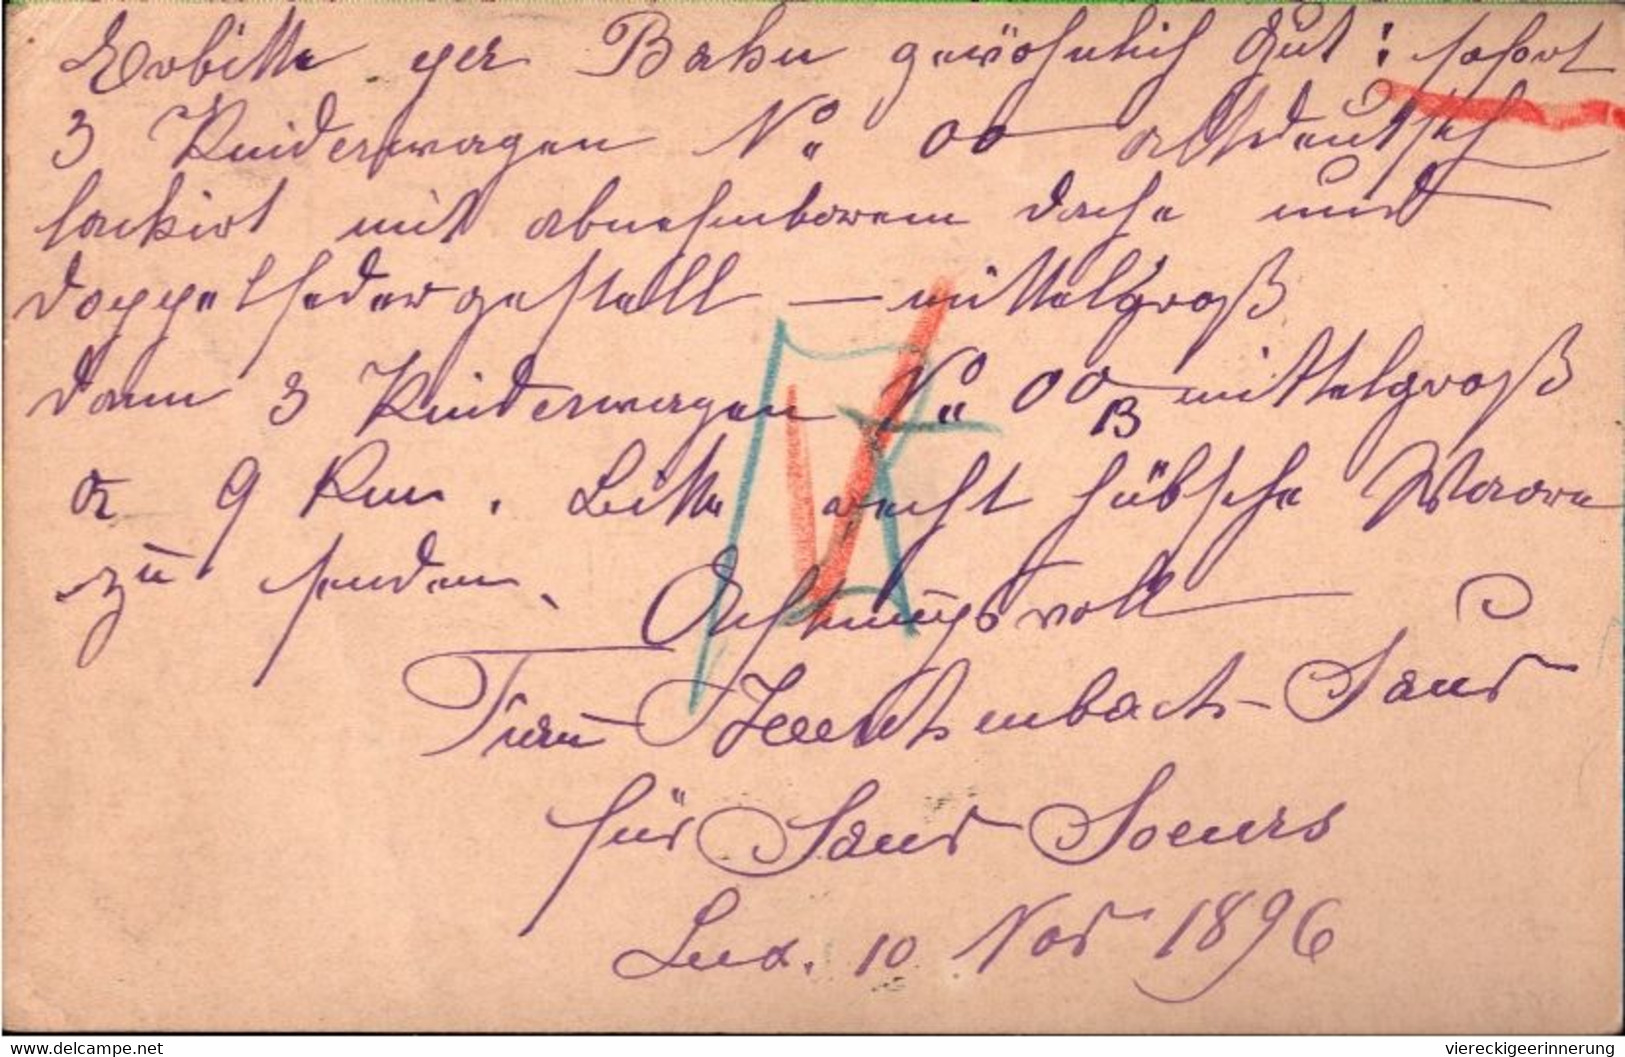 Erbitte per Bahn gewöhnlich Gut: sofort
3 Kinderwagen No. 00 altdeutsch
lackirt mit abnehmbarem Dache und
Doppelfedergestell – mittelgroß
dann 3 Kinderwagen No. 00 B mittelgroß
a 9 Rm. Bitte recht hübsche Waare
zu senden. Achtungsvoll
Frau
für Soeurs
Lux. 10 Nov 1896
delcampe.net
viereckigeerinnerung